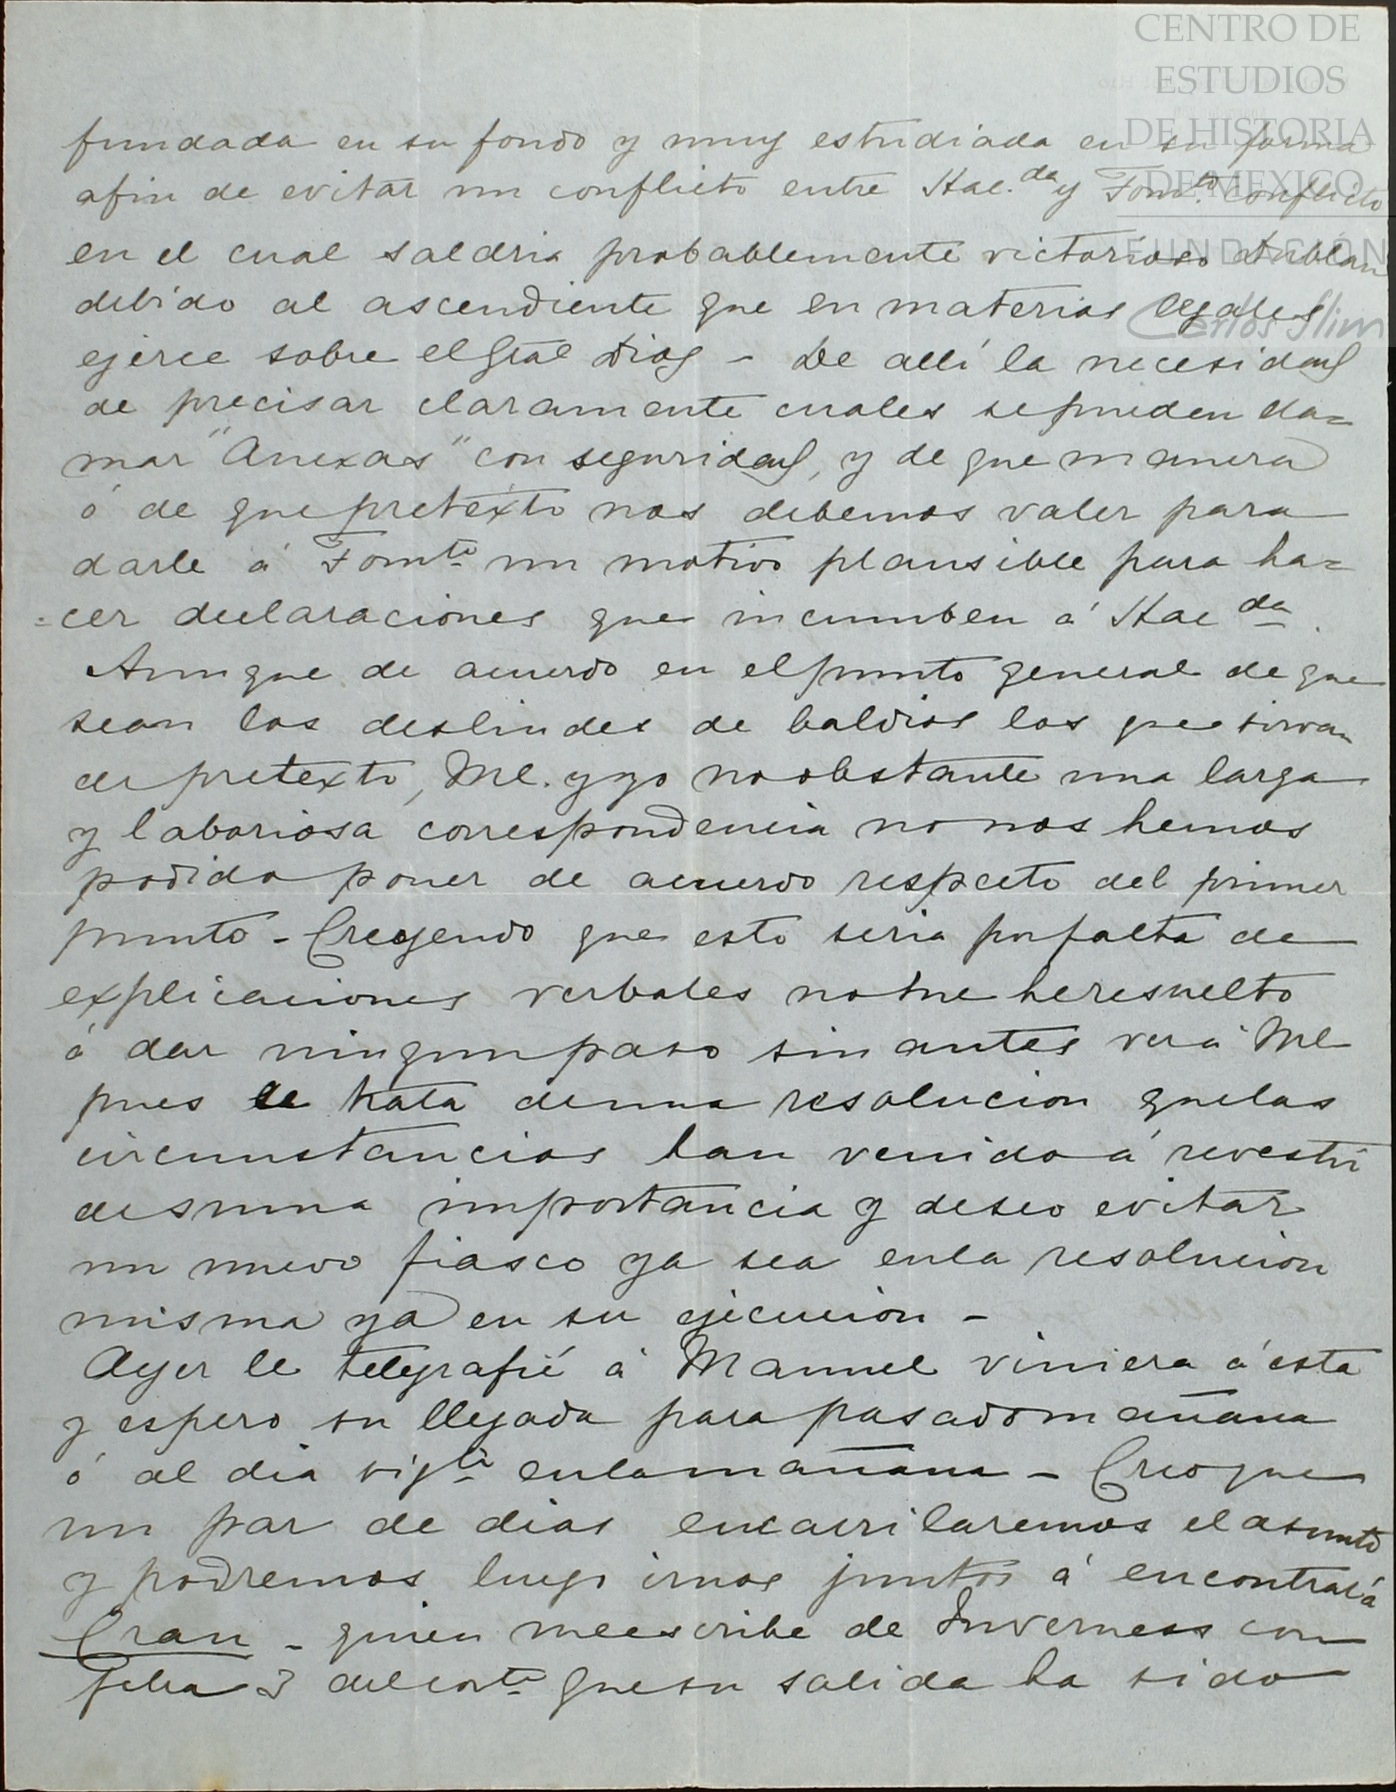 CENTRO DE
ESTUDIOS
DE HISTORIA
DE MEXICO
FUNDACIÓN
Carlos Slim
fundada en su fondo y muy estudiada en su forma
afin de evitar un conflicto entre Hac.da y Fomto conflicto
en el cual saldria probablemente victorioso Dublan
debido al ascendiente que en materias legales
ejerce sobre el Gral Diaz – De allí la necesidad
de precisar claramente cuales se pueden lla=
mar "Anexas" con seguridad, y de que manera
ó de que pretexto nos debemos valer para
darle á Fomto un motivo plausible para ha=
=cer declaraciones que incumben á Hacda.
Aunque de acuerdo en el punto general de que
sean los deslindes de baldios los que sirvan
de pretexto, Ml. y yo no obstante una larga
y laboriosa correspondencia no nos hemos
podido poner de acuerdo respecto del primer
punto – Creyendo que esto seria por falta de
explicaciones verbales no me he resuelto
á dar ningun paso sin antes ver á Ml
pues se trata de una resolucion que las
circunstancias han venido á revestir
de suma importancia y deseo evitar
un nuevo fiasco ya sea en la resolucion
misma ya en su ejecucion –
Ayer le telegrafié á Manuel viniera á esta
y espero su llegada para pasado mañana
ó al dia sigte en la mañana – Creo que
un par de dias encarrilaremos el asunto
y podremos luego irnos juntos á encontrar á
Cran – quien me escribe de Inverness con
fecha 3 del corte que su salida ha sido